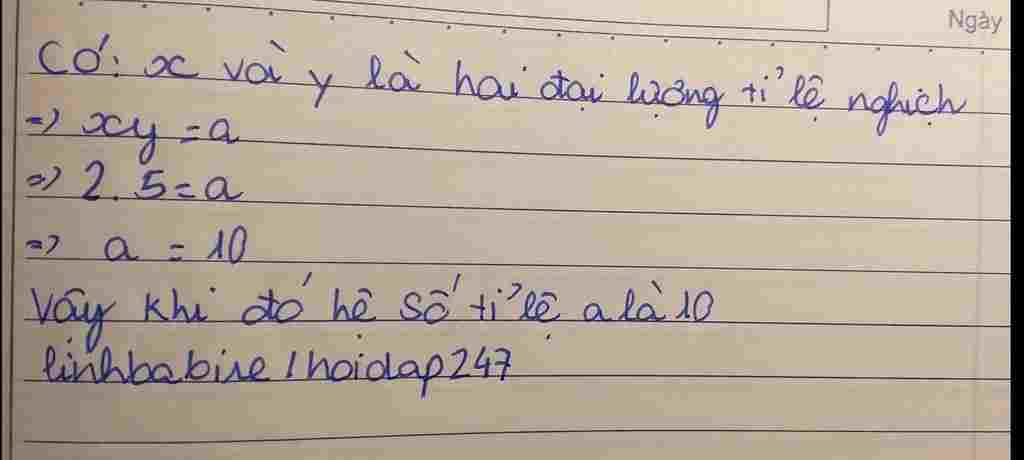 Ngày
Có: x và y là hai đại lượng tỉ lệ nghịch
=> xy = a
=> 2.5 = a
=> a = 10
Vậy khi đó hệ số tỉ lệ a là 10
linhbabie / hoidap247